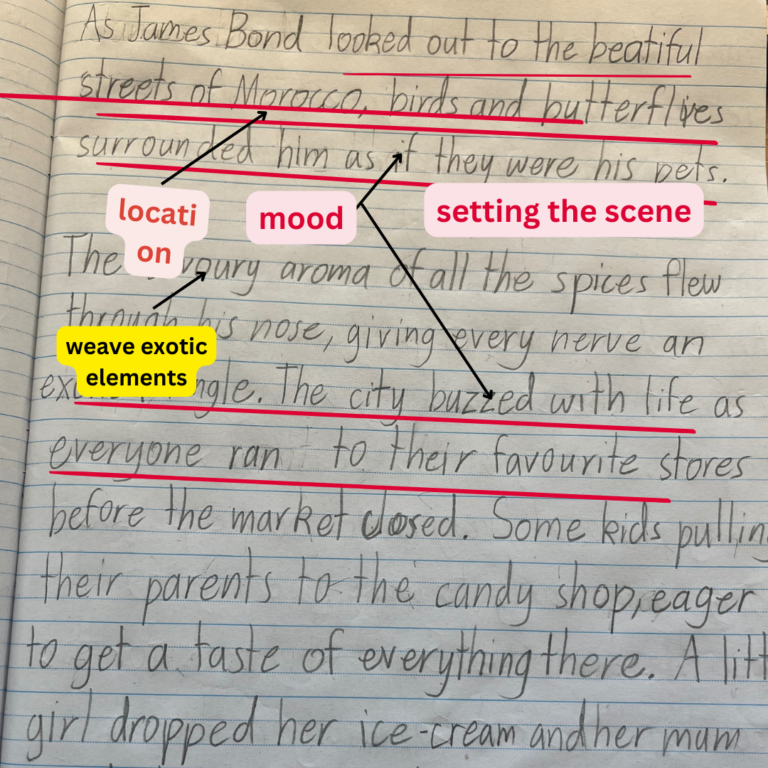 As James Bond looked out to the beatiful
streets of Morocco, birds and butterflies
surrounded him as if they were his pets.
locati
on
mood
setting the scene
The aroma of all the spices flew
through his nose, giving every nerve an
weave exotic
elements
The city buzzed with life as
everyone ran to their favourite stores
before the market closed. Some kids pullin
their parents to the candy shop, eager
to get a taste of everything there. A litt
girl dropped her ice-cream and her mum